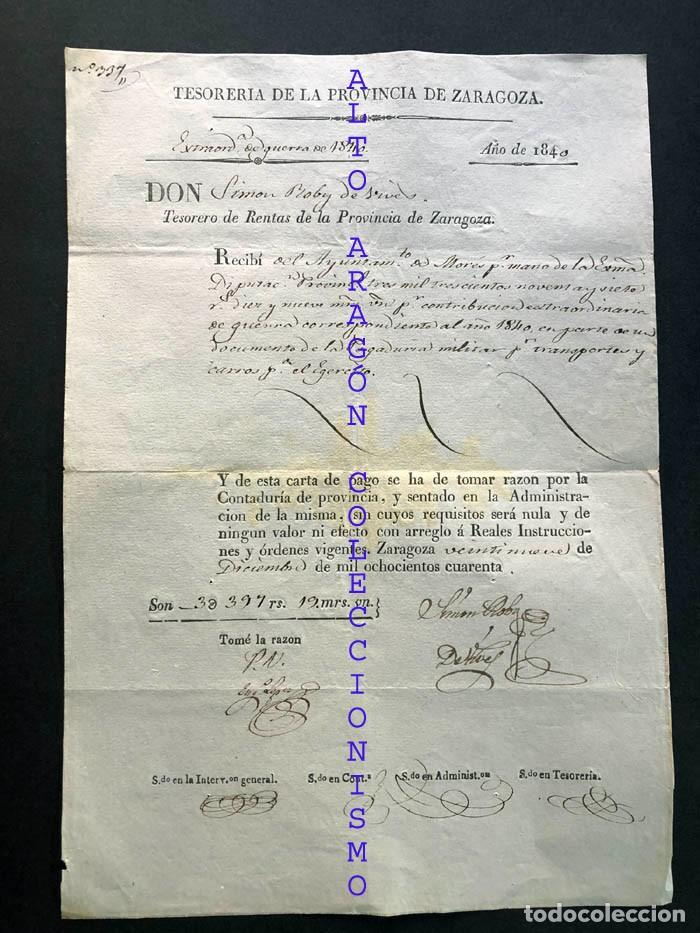 nº 337
TESORERIA DE LA PROVINCIA DE ZARAGOZA.
Extraordª de guerra de 1840. Año de 1840
DON Simon Roby de Vives.
Tesorero de Rentas de la Provincia de Zaragoza.
Recibí del Ayuntamto de Mores pr mano de la Exma
Diputacn Provincial tres mil trescientos noventa y siete
rs diez y nueve mrs vn pr contribucion estraordinaria
de guerra correspondiente al año 1840, en parte de un
documento de la Pagaduria militar pr transportes y
carros pa el Egercito.
Y de esta carta de pago se ha de tomar razon por la
Contaduría de provincia, y sentado en la Administra-
cion de la misma, sin cuyos requisitos será nula y de
ningun valor ni efecto con arreglo á Reales Instruccio-
nes y órdenes vigentes. Zaragoza veintinueve de
Diciembre de mil ochocientos cuarenta
Son 3@397 rs. 19 mrs. vn.}
Simon Roby
de Vives
Tomé la razon
S.do en la Interv.on general. S.do en Cont.a S.do en Administ.on S.do en Tesorería.
ALTO ARAGÓN COLECCIONISMO
todocoleccion